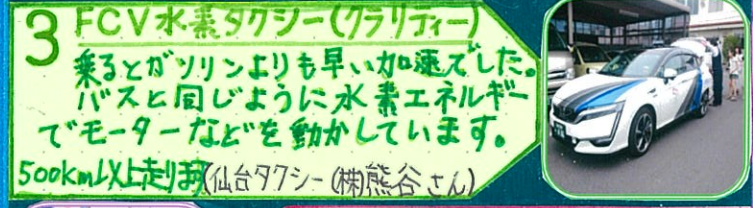 3 FCV水素タクシー(クラリティー)
乗るとガソリンよりも早い加速でした。
バスと同じように水素エネルギー
でモーターなどを動かしています。
500km以上走ります(仙台タクシー(株)熊谷さん)